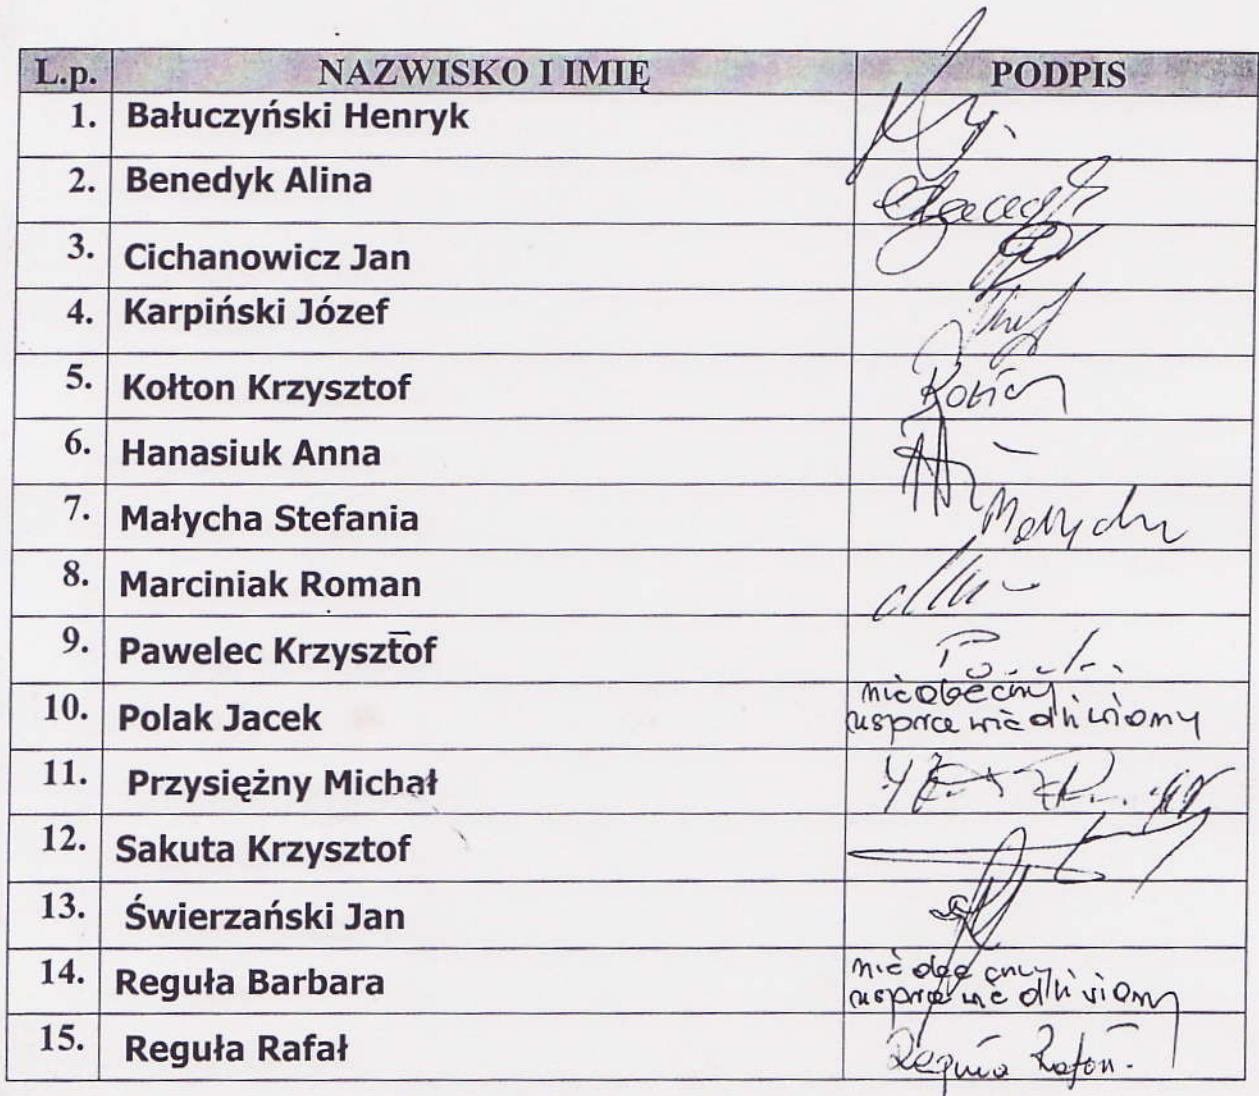 L.p. NAZWISKO I IMIĘ PODPIS
1. Bałuczyński Henryk
2. Benedyk Alina
3. Cichanowicz Jan
4. Karpiński Józef
5. Kołton Krzysztof
6. Hanasiuk Anna
7. Małycha Stefania Małycha
8. Marciniak Roman
9. Pawelec Krzysztof
10. Polak Jacek nieobecny
usprawiedliwiony
11. Przysiężny Michał
12. Sakuta Krzysztof
13. Świerzański Jan
14. Reguła Barbara nieobecny
usprawiedliwiony
15. Reguła Rafał Reguła Rafał